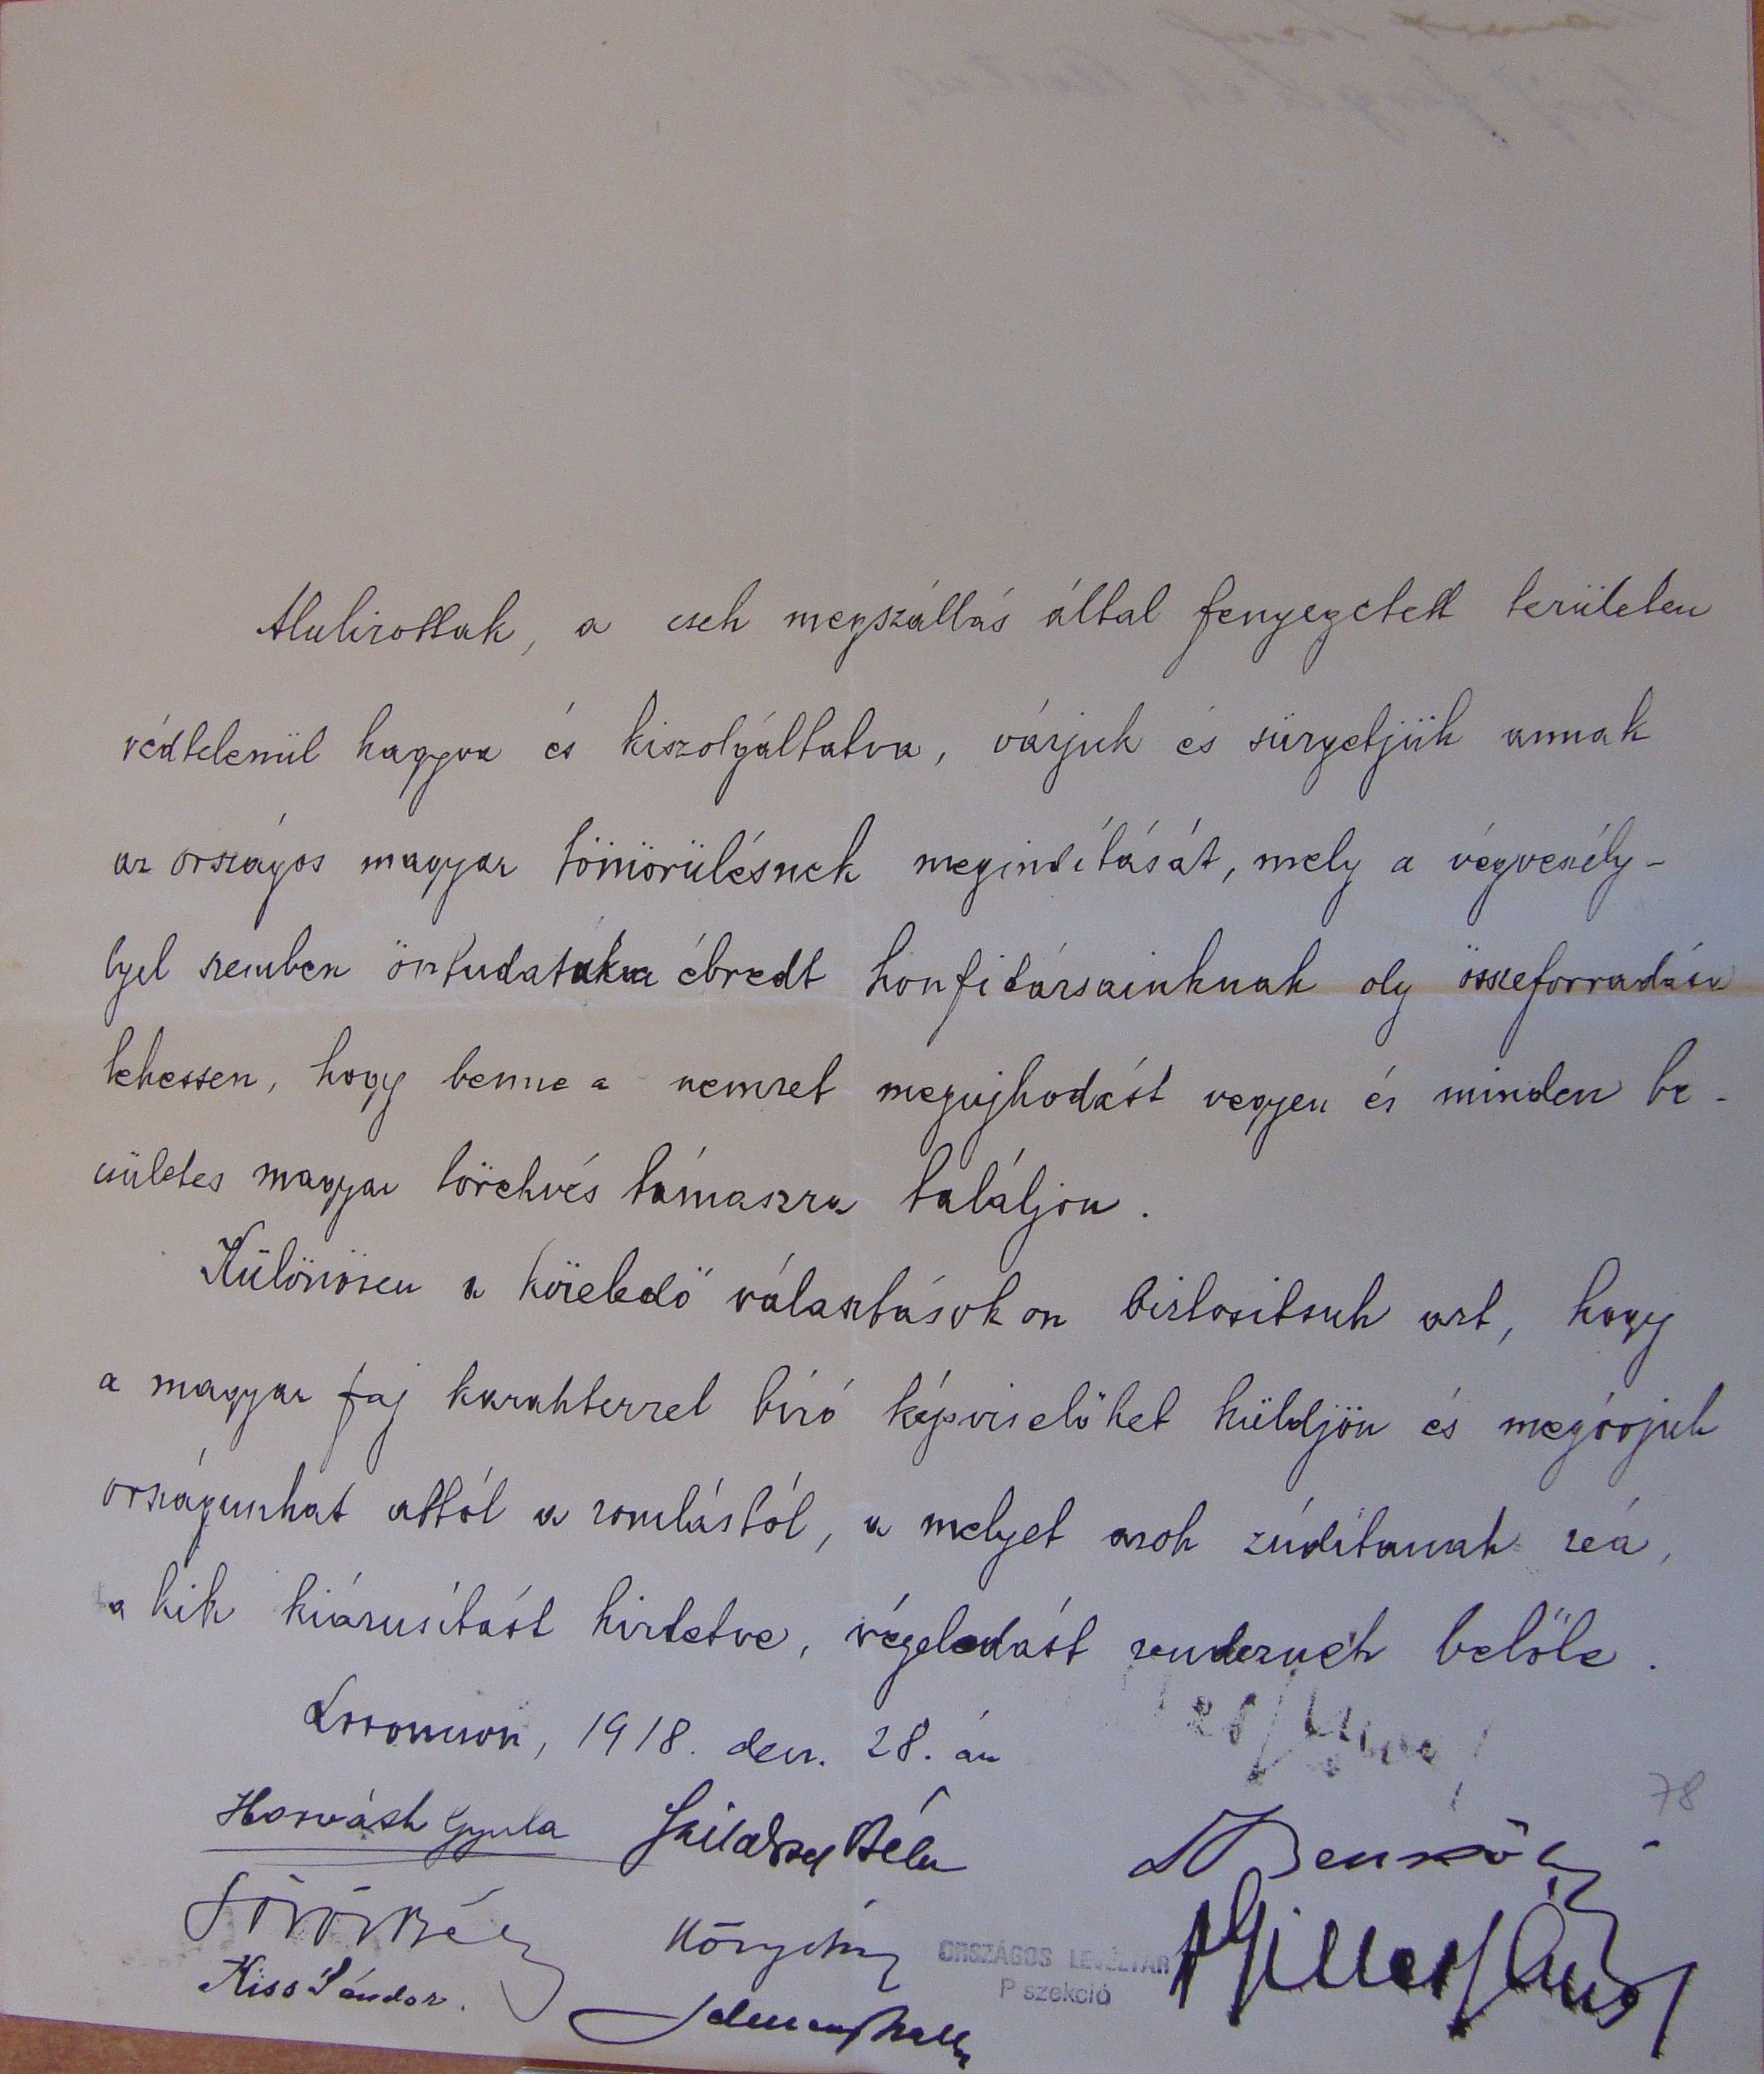 Alulirottak, a cseh megszállás által fenyegetett területen
védtelenül hagyva és kiszolgáltatva, várjuk és sürgetjük annak
az országos magyar tömörülésnek megindítását, mely a végveszély-
lyel szemben öntudatukra ébredt honfitársainknak oly összeforradása
lehessen, hogy benne a nemzet megujhodást vegyen és minden be-
csületes magyar törekvés támaszra találjon.
Különösen a közeledő választásokon biztositsuk azt, hogy
a magyar faj karakterrel bíró képviselőket küldjön és megóvjuk
országunkat attól a romlástól, a melyet azok zúdítanak reá,
a kik kiárusítást hirdetve, végeladást rendeznek belőle.
Losonczon, 1918. dec. 28. án
78
Horváth Gyula Béla Benkő
Kiss Sándor.
ORSZÁGOS LEVÉLTÁR
P szekció